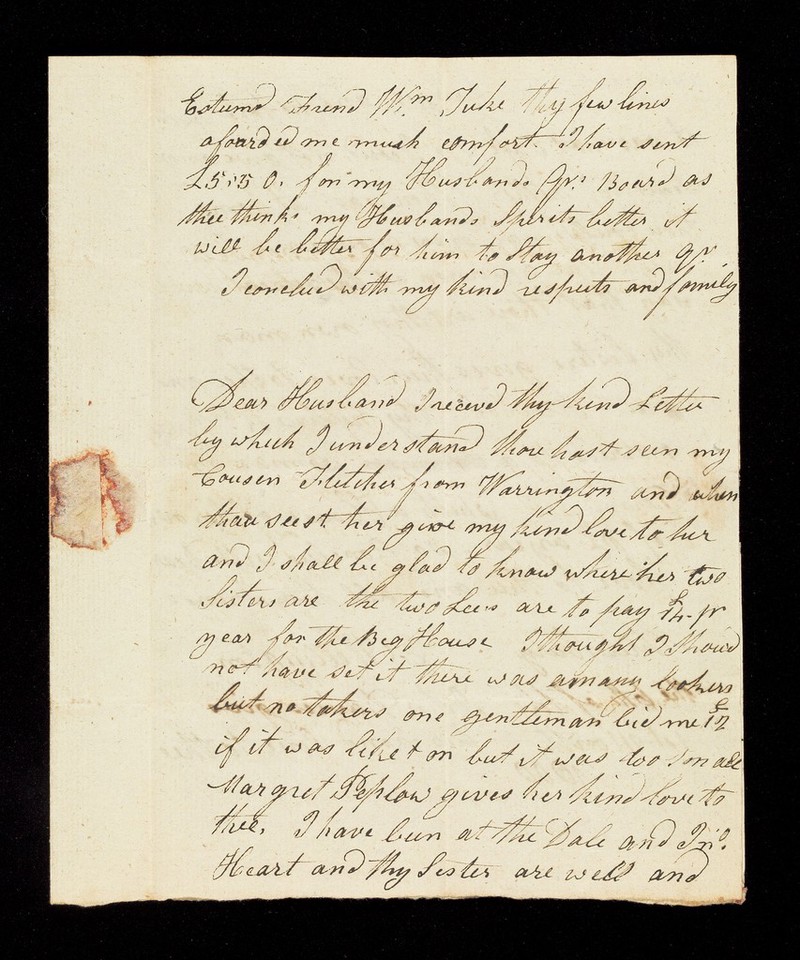 Esteemd Friend Wm. Tuke thy few lines
afoarded me much comfort. I have sent
£5:5 0. for my Husbands Qr: Board as
thee thinks my Husbands Spirits better it
will be better for him to Stay another qr.
I conclud with my kind respects and family
Dear Husband I receved thy kind Letter
by which I understand thou hast seen my
Cousen Fletcher from Warrington and when
thou seest her give my kind love to her
and I shall be glad to know where her two
Sisters are the two Lees are to pay £14 pr
year for the Beg House I thought I Should
not have set it there was a many lookers
but no takers one gentleman bid me £12
if it was liket on but it was too
Margret Peplow gives her kind love to
thee. I have been at the Dale and Jno.
Heart and thy Sister are well and